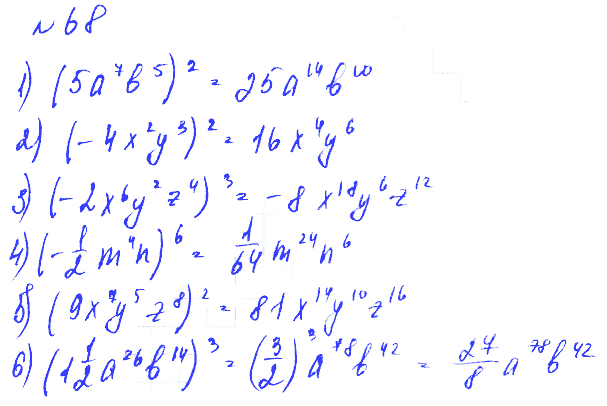 №68
1) (5a⁷b⁵)² = 25a¹⁴b¹⁰
2) (-4x²y³)² = 16x⁴y⁶
3) (-2x⁶y²z⁴)³ = -8x¹⁸y⁶z¹²
4) (-1/2 m⁴n)⁶ = 1/64 m²⁴n⁶
5) (9x⁷y⁵z⁸)² = 81x¹⁴y¹⁰z¹⁶
6) (1 1/2 a²⁶b¹⁴)³ = (3/2)³a⁷⁸b⁴² = 27/8 a⁷⁸b⁴²